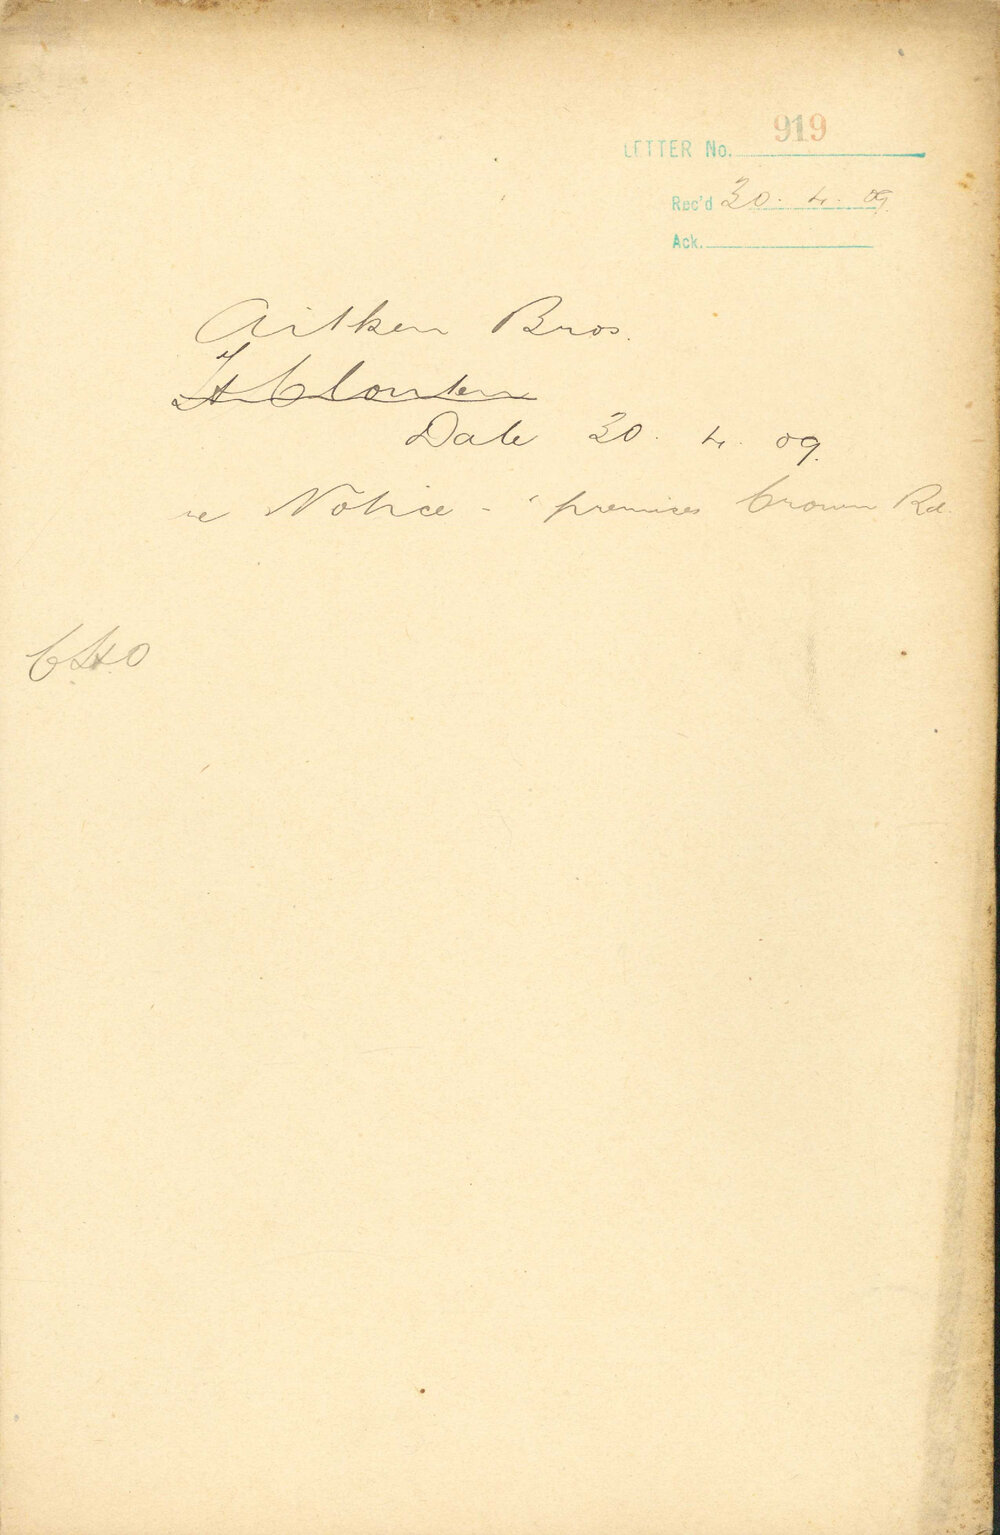 LETTER No. 919
Rec'd 30. 4. 09.
Ack.
Aitken Bros.
Date 30. 4. 09.
re Notice - premises Crown Rd.
CHO